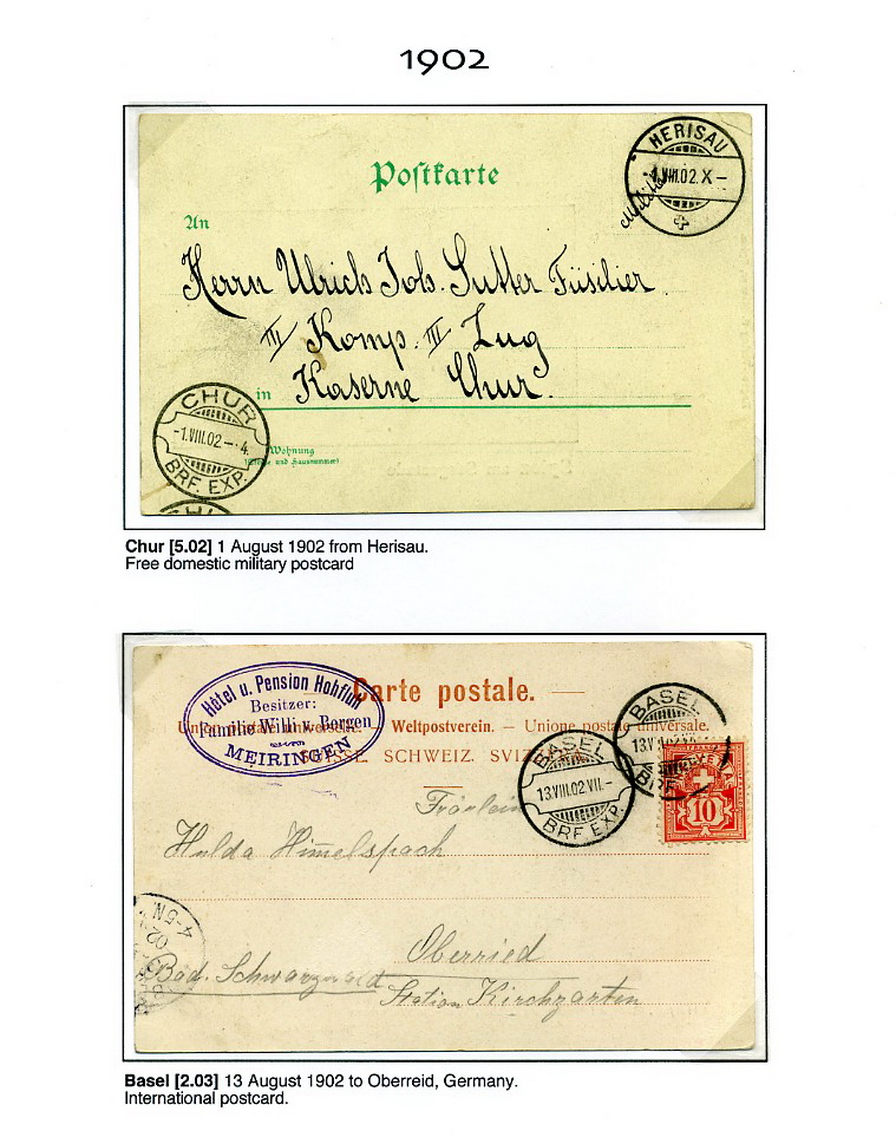 1902
HERISAU
-1.VIII.02.X-
Militär
Postkarte
An
Herrn Ulrich Joh. Sutter Füsilier
III Komp. III Zug
in Kaserne Chur.
CHUR
-1.VIII.02.-·4.
BRF. EXP.
Wohnung
und Hausnummer)
Chur [5.02] 1 August 1902 from Herisau.
Free domestic military postcard
Hôtel u. Pension Hohfluh
Besitzer:
Familie Willi v. Bergen
MEIRINGEN
Carte postale.
Union postale universelle. – Weltpostverein. – Unione postale universale.
SUISSE. SCHWEIZ. SVIZZERA.
BASEL
13.VIII.02
BASEL
13.VIII.02.VII.-
BRF. EXP.
FRANCO
HELVETIA
10
Fräulein
Hulda Him̅elspach
Oberried
Bad. Schwarzwald
Station Kirchzarten
4-5N
02
Basel [2.03] 13 August 1902 to Oberreid, Germany.
International postcard.